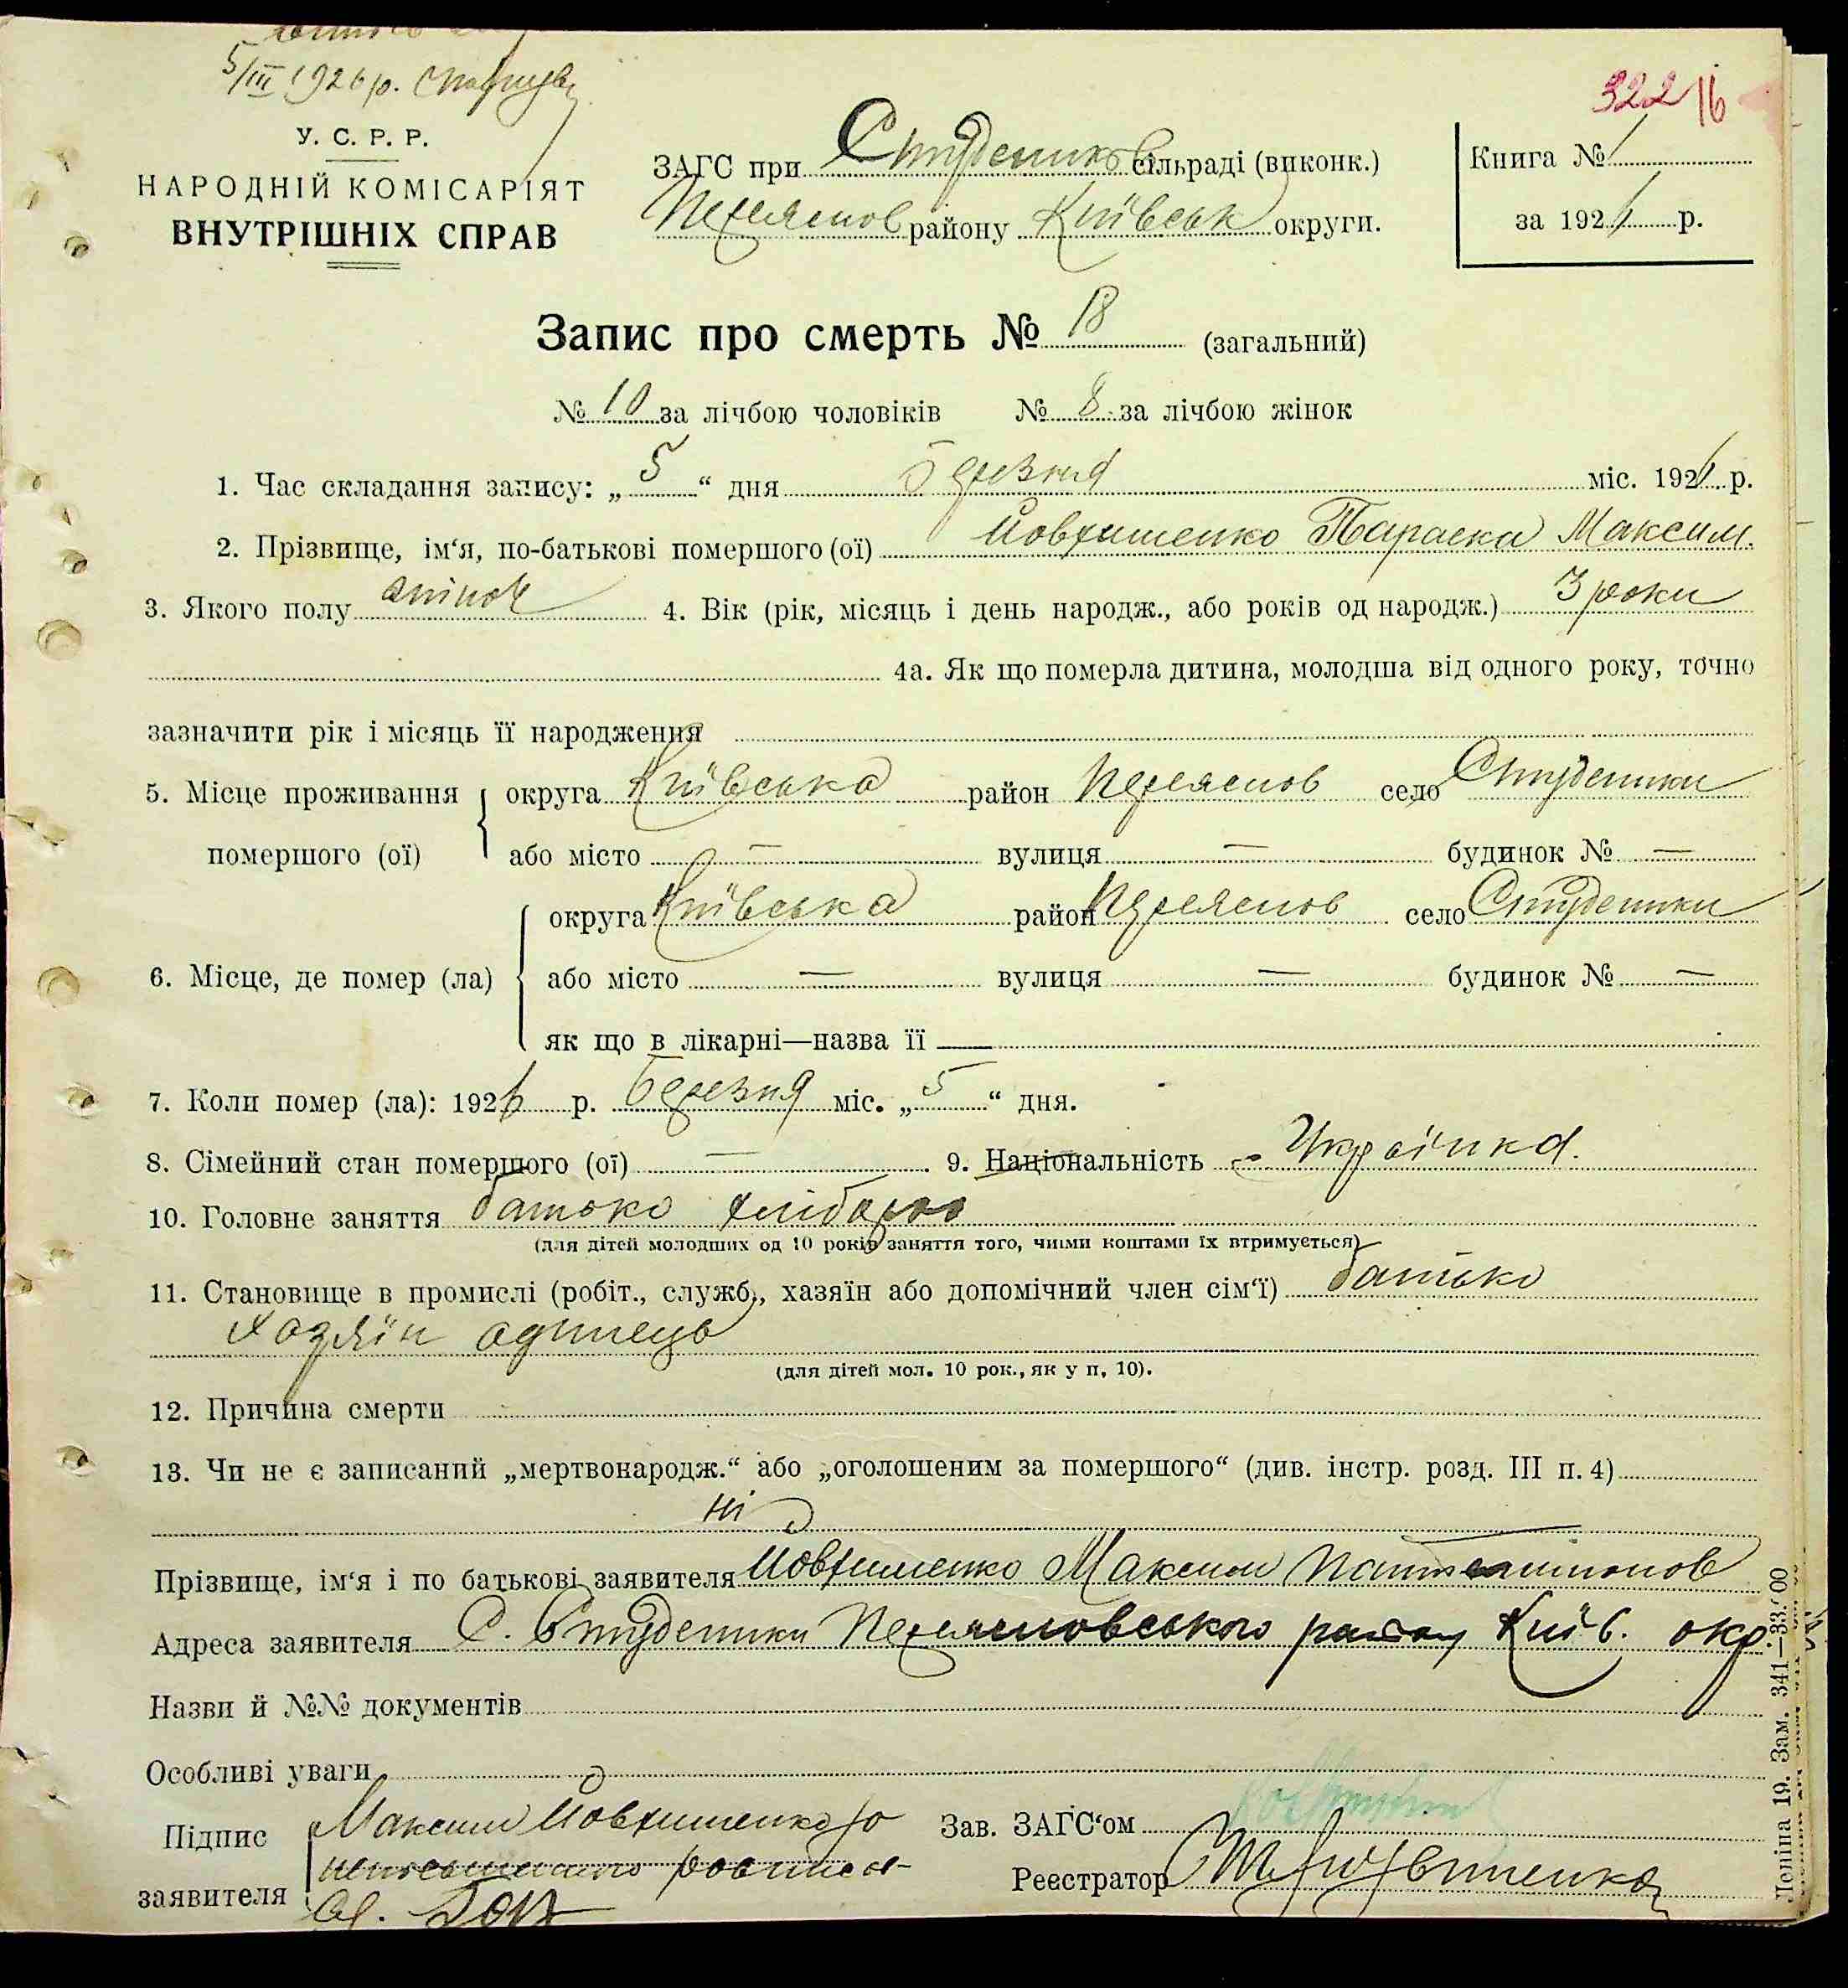 5/III 1926 р.
322 16
У. С. Р. Р.
НАРОДНІЙ КОМІСАРІЯТ
ВНУТРІШНІХ СПРАВ
ЗАГС при Студеників сільраді (виконк.)
Переяслов району Київськ округи.
Книга № 1
за 1926 р.
Запис про смерть № 18 (загальний)
№ 10 за лічбою чоловіків № 8 за лічбою жінок
1. Час складання запису: „ 5 “ дня березня міс. 1926 р.
2. Прізвище, ім‘я, по-батькові помершого (ої) Йовхименко Параска Максим.
3. Якого полу жіноч 4. Вік (рік, місяць і день народж., або років од народж.) 3 роки
4а. Як що померла дитина, молодша від одного року, точно
зазначити рік і місяць її народження
5. Місце проживання округа Київська район Переяслов село Студеники
помершого (ої) або місто — вулиця — будинок № —
округа Київська район Переяслов село Студеники
6. Місце, де помер (ла) або місто — вулиця — будинок № —
як що в лікарні—назва її —
7. Коли помер (ла): 1926 р. Березня міс. „ 5 “ дня.
8. Сімейний стан помершого (ої) — 9. Національність Українка.
10. Головне заняття батько хлібороб
(для дітей молодших од 10 років заняття того, чиїми коштами їх втримується)
11. Становище в промислі (робіт., служб., хазяїн або допомічний член сім‘ї) батько
хазяїн одинець
(для дітей мол. 10 рок., як у п. 10).
12. Причина смерти
13. Чи не є записаний „мертвонародж.“ або „оголошеним за помершого“ (див. інстр. розд. III п. 4)
ні
Прізвище, ім‘я і по батькові заявителя Йовхименко Максим
Адреса заявителя С. Студеники Переясловського району Київ. окр.
Назви й №№ документів
Особливі уваги
Підпис Максим Йовхименко Зав. ЗАГС‘ом
заявителя Реєстратор
Леніна 19. Зам. 341—33.00